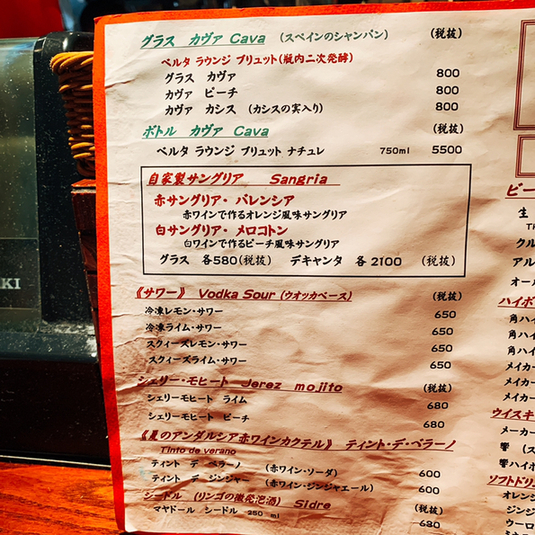 グラス カヴァ Cava (スペインのシャンパン) (税抜)
ベルタ ラウンジ ブリュット(瓶内二次発酵)
グラス カヴァ 800
カヴァ ピーチ 800
カヴァ カシス (カシスの実入り) 800
ボトル カヴァ Cava (税抜)
ベルタ ラウンジ ブリュット ナチュレ 750ml 5500
自家製サングリア Sangria
赤サングリア・ バレンシア
赤ワインで作るオレンジ風味サングリア
白サングリア・ メロコトン
白ワインで作るピーチ風味サングリア
グラス 各580(税抜) デキャンタ 各2100 (税抜)
《サワー》 Vodka Sour (ウオッカベース) (税抜)
冷凍レモン・サワー 650
冷凍ライム・サワー 650
スクィーズレモン・サワー 650
スクィーズライム・サワー 650
シェリー・モヒート Jerez mojito (税抜)
シェリーモヒート ライム 680
シェリーモヒート ピーチ 680
《夏のアンダルシア赤ワインカクテル》 ティント・デ・ベラーノ
Tinto de verano
ティント デ ベラーノ (赤ワイン・ソーダ) 600
ティント デ ジンジャー (赤ワイン・ジンジャエール) 600
シードル (リンゴの微発泡酒) Sidre (税抜)
マヤドール シードル 250 ml 680
ビー
生
クル
アル
オー
ハイボ
角ハイ
角ハイ
メイカ
メイカ
メイカ
ウイスキ
メーカー
響 (ス
響ハイボ
ソフトドリ
オレン
ジンジ
ウーロ
KI